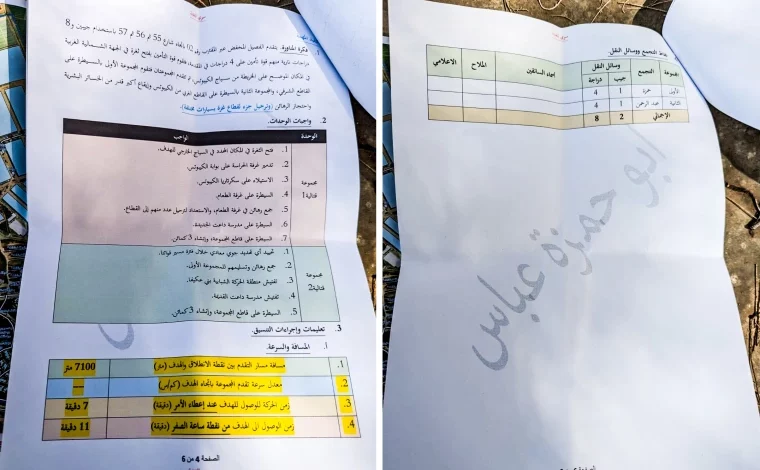 1. فكرة المناورة. يتقدم الفصيل المخفض عبر المقلاب رقم باتجاه شارع 55 ثم 56 ثم 57 باستخدام جيبين و8
دراجات نارية منهم قوة تأمين على 4 دراجات في المقدمة، فتقوم قوة التأمين بفتح ثغرة في الجهة الشمالية الغربية
في المكان الموضح على الخريطة من سياج الكيبوتس، ثم تتقدم المجموعتان فتقوم المجموعة الأولى بالسيطرة على
القاطع الشرقي، والمجموعة الثانية بالسيطرة على القاطع الغربي من الكيبوتس وإيقاع أكبر قدر من الخسائر البشرية
واحتجاز الرهائن (وترحيل جزء لقطاع غزة بسيارات مختلفة).
2. واجبات الوحدات.
الوحدة الواجب
مجموعة قتالية1
1. فتح الثغرة في المكان المحدد في السياج الخارجي للهدف.
2. تدمير غرفة الحراسة على بوابة الكيبوتس.
3. الاستيلاء على سكرتاريا الكيبوتس.
4. السيطرة على غرفة الطعام.
5. جمع رهائن في غرفة الطعام، والاستعداد لترحيل عدد منهم إلى القطاع.
6. السيطرة على مدرسة داعت الجديدة.
7. السيطرة على قاطع المجموعة، وإنشاء 3 كمائن.
مجموعة قتالية2
1. تحييد أي تهديد جوي معادي خلال فترة مسير قواتنا.
2. جمع رهائن وتسليمهم للمجموعة الأولى.
3. تفتيش منطقة الحركة الشبابية بني عكيفا.
4. تفتيش مدرسة داعت القديمة.
5. السيطرة على قاطع المجموعة، وإنشاء 3 كمائن.
3. تعليمات وإجراءات التنسيق.
أ. المسافة والسرعة.
1. مسافة مسار التقدم بين نقطة الانطلاق والهدف (متر) 7100 متر
2. معدل سرعة تقدم المجموعة باتجاه الهدف (كم/س) ---
3. زمن الحركة للوصول للهدف عند إعطاء الأمر (دقيقة) 7 دقيقة
4. زمن الوصول الى الهدف من نقطة ساعة الصفر (دقيقة) 11 دقيقة
الصفحة 4 من 6
نقاط التجمع ووسائل النقل
المجموعة التجمع وسائل النقل أسماء السائقين الملاح الاعلامي
جيب دراجة
الأولى حمزة 1 4
الثانية عبد الرحمن 1 4
الإجمالي 2 8
ابو حمزة عباس